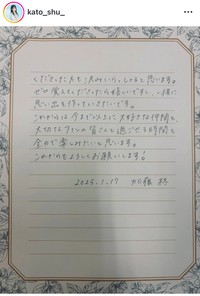 kato_shu_
くださった方も決めいら、しゃると思います。
ぜひ覚えてくださったら嬉しいですし、一緒に
思い出を作っていきたいです。
これからは今まで以上に大好きな仲間と
大切なファンの皆さんと過ごせる時間を
全力で楽しみたいと思います。
これからもよろしくお願いします!
2025.1.17